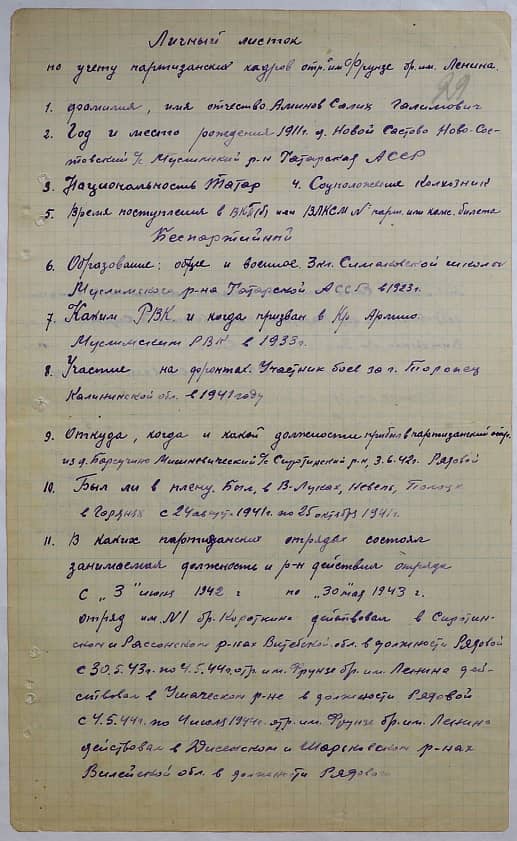 Личный листок
по учету партизанских кадров отр. им Фрунзе бр. им. Ленина.
29
1. фамилия, имя отчество Аминов Салих Галимович
2. Год и место рождения 1911 г. д. Новой Састово Ново-Сас-
товский с/с Муслимский р-н Татарская АССР
3. Национальность Татар 4. Соцположение Колхозник
5. Время поступления в ВКП(б) или ВЛКСМ № парт. или комс. билета
Беспартийный
6. Образование: общее и военное. 3 кл. школы
Муслимского р-на Татарской АССР в 1923 г.
7. Каким РВК и когда призван в Кр Армию
Муслимским РВК в 1933 г.
8. Участие на фронтах. Участник боев за г. Торопец
Калининской обл. в 1941 году
9. Откуда, когда и какой должности прибыл в партизанский отр.
из д. Барсучино с/с Сиротинский р-н, 3.6.42 г. Рядовой
10. Был ли в плену. Был, в В-Луках, Невель, Полоцк
в с 24 август 1941 г. по 25 октября 1941 г.
11. В каких партизанских отрядах состоял
занимаемая должность и р-н действия отряда
с „3" июня 1942 г по „30" мая 1943 г.
отряд им. №1 бр. Короткина действовал в Сиротин-
ском и Россонском р-нах Витебской обл. в должности Рядовой
с 30.5.43 г. по 4.5.44 г. отр. им. Фрунзе бр. им. Ленина дей-
ствовал в Ушачском р-не в должности Рядовой
с 4.5.44 г. по 4 июль 1944 г. отр. им. Фрунзе бр. им. Ленина
действовал в Дисенском и р-нах
Вилейской обл. в должности Рядового